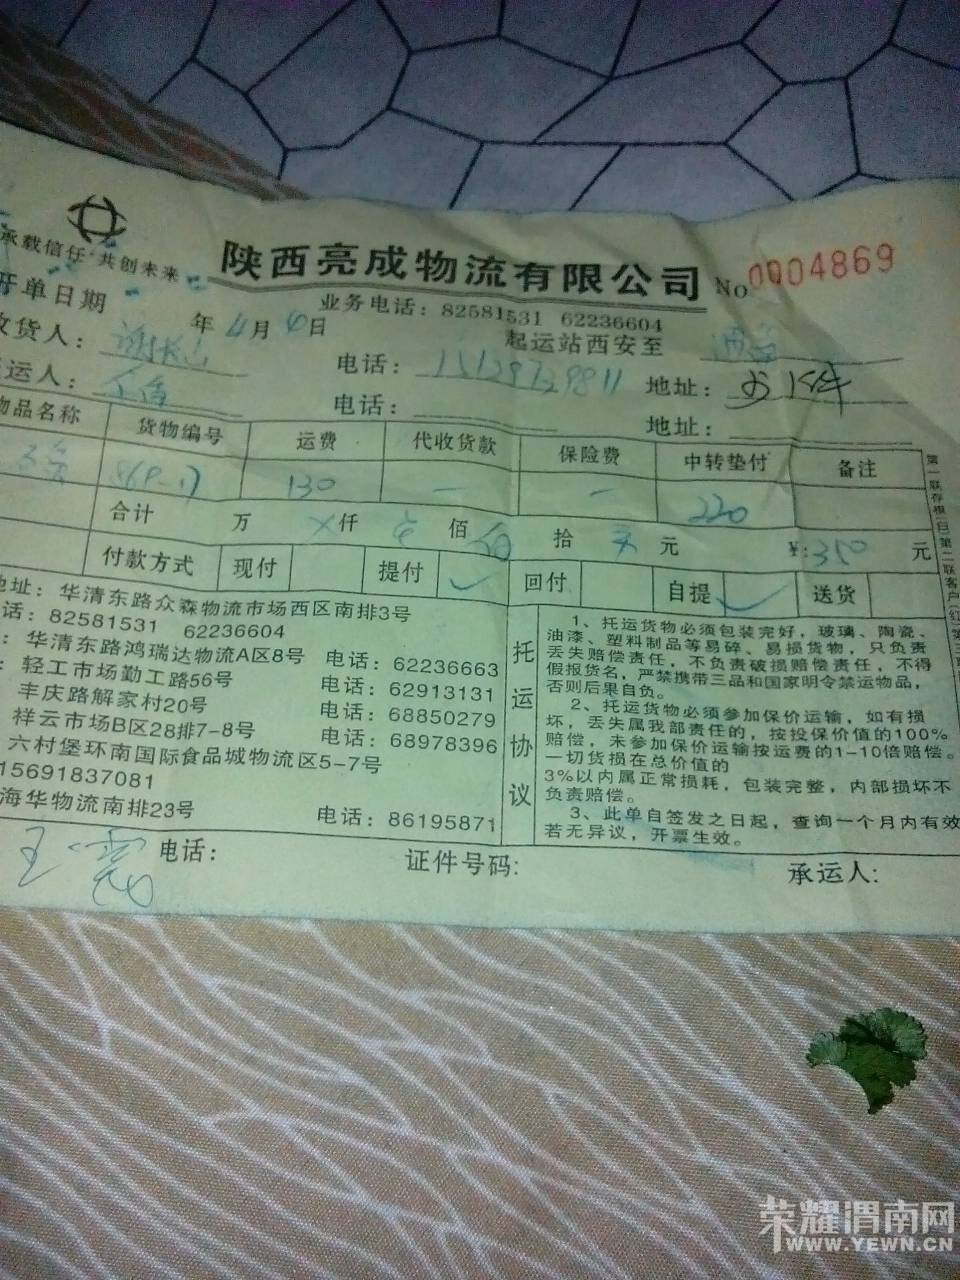 承载信任 共创未来
陕西亮成物流有限公司
No 0004869
业务电话：82581531 62236604
开单日期 年 4月 6日
起运站西安至
收货人：
电话：15129129811
地址：
运人：
电话：
地址：
物品名称 货物编号 运费 代收货款 保险费 中转垫付 备注
130 — — 220
合计 万 仟 佰 拾 元 ¥:350 元
付款方式 现付 提付 ✓ 回付 自提 ✓ 送货
地址：华清东路众森物流市场西区南排3号
话：82581531 62236604
：华清东路鸿瑞达物流A区8号 电话：62236663
：轻工市场勤工路56号 电话：62913131
丰庆路解家村20号 电话：68850279
祥云市场B区28排7-8号 电话：68978396
六村堡环南国际食品城物流区5-7号
15691837081
海华物流南排23号 电话：86195871
托运协议
1、托运货物必须包装完好，玻璃、陶瓷、
油漆、塑料制品等易碎、易损货物，只负责
丢失赔偿责任，不负责破损赔偿责任，不得
假报货名，严禁携带三品和国家明令禁运物品，
否则后果自负。
2、托运货物必须参加保价运输，如有损
坏，丢失属我部责任的，按投保价值的100%
赔偿，未参加保价运输按运费的1-10倍赔偿。
一切货损在总价值的
3%以内属正常损耗，包装完整，内部损坏不
负责赔偿。
3、此单自签发之日起，查询一个月内有效
若无异议，开票生效。
第一联存根(白)第二联客户(红
电话：
证件号码：
承运人：
荣耀渭南网
WWW.YEWN.CN